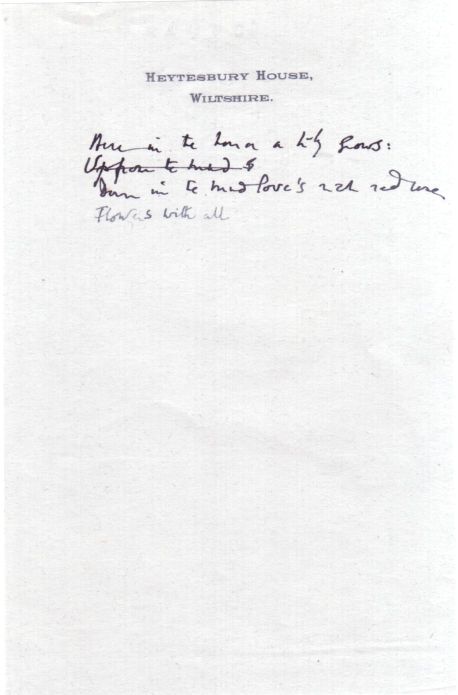 HEYTESBURY HOUSE,
WILTSHIRE.
Here in the horror a lily grows:
Up from the mud
Down in the mud love's rich red rose
Flowers with all